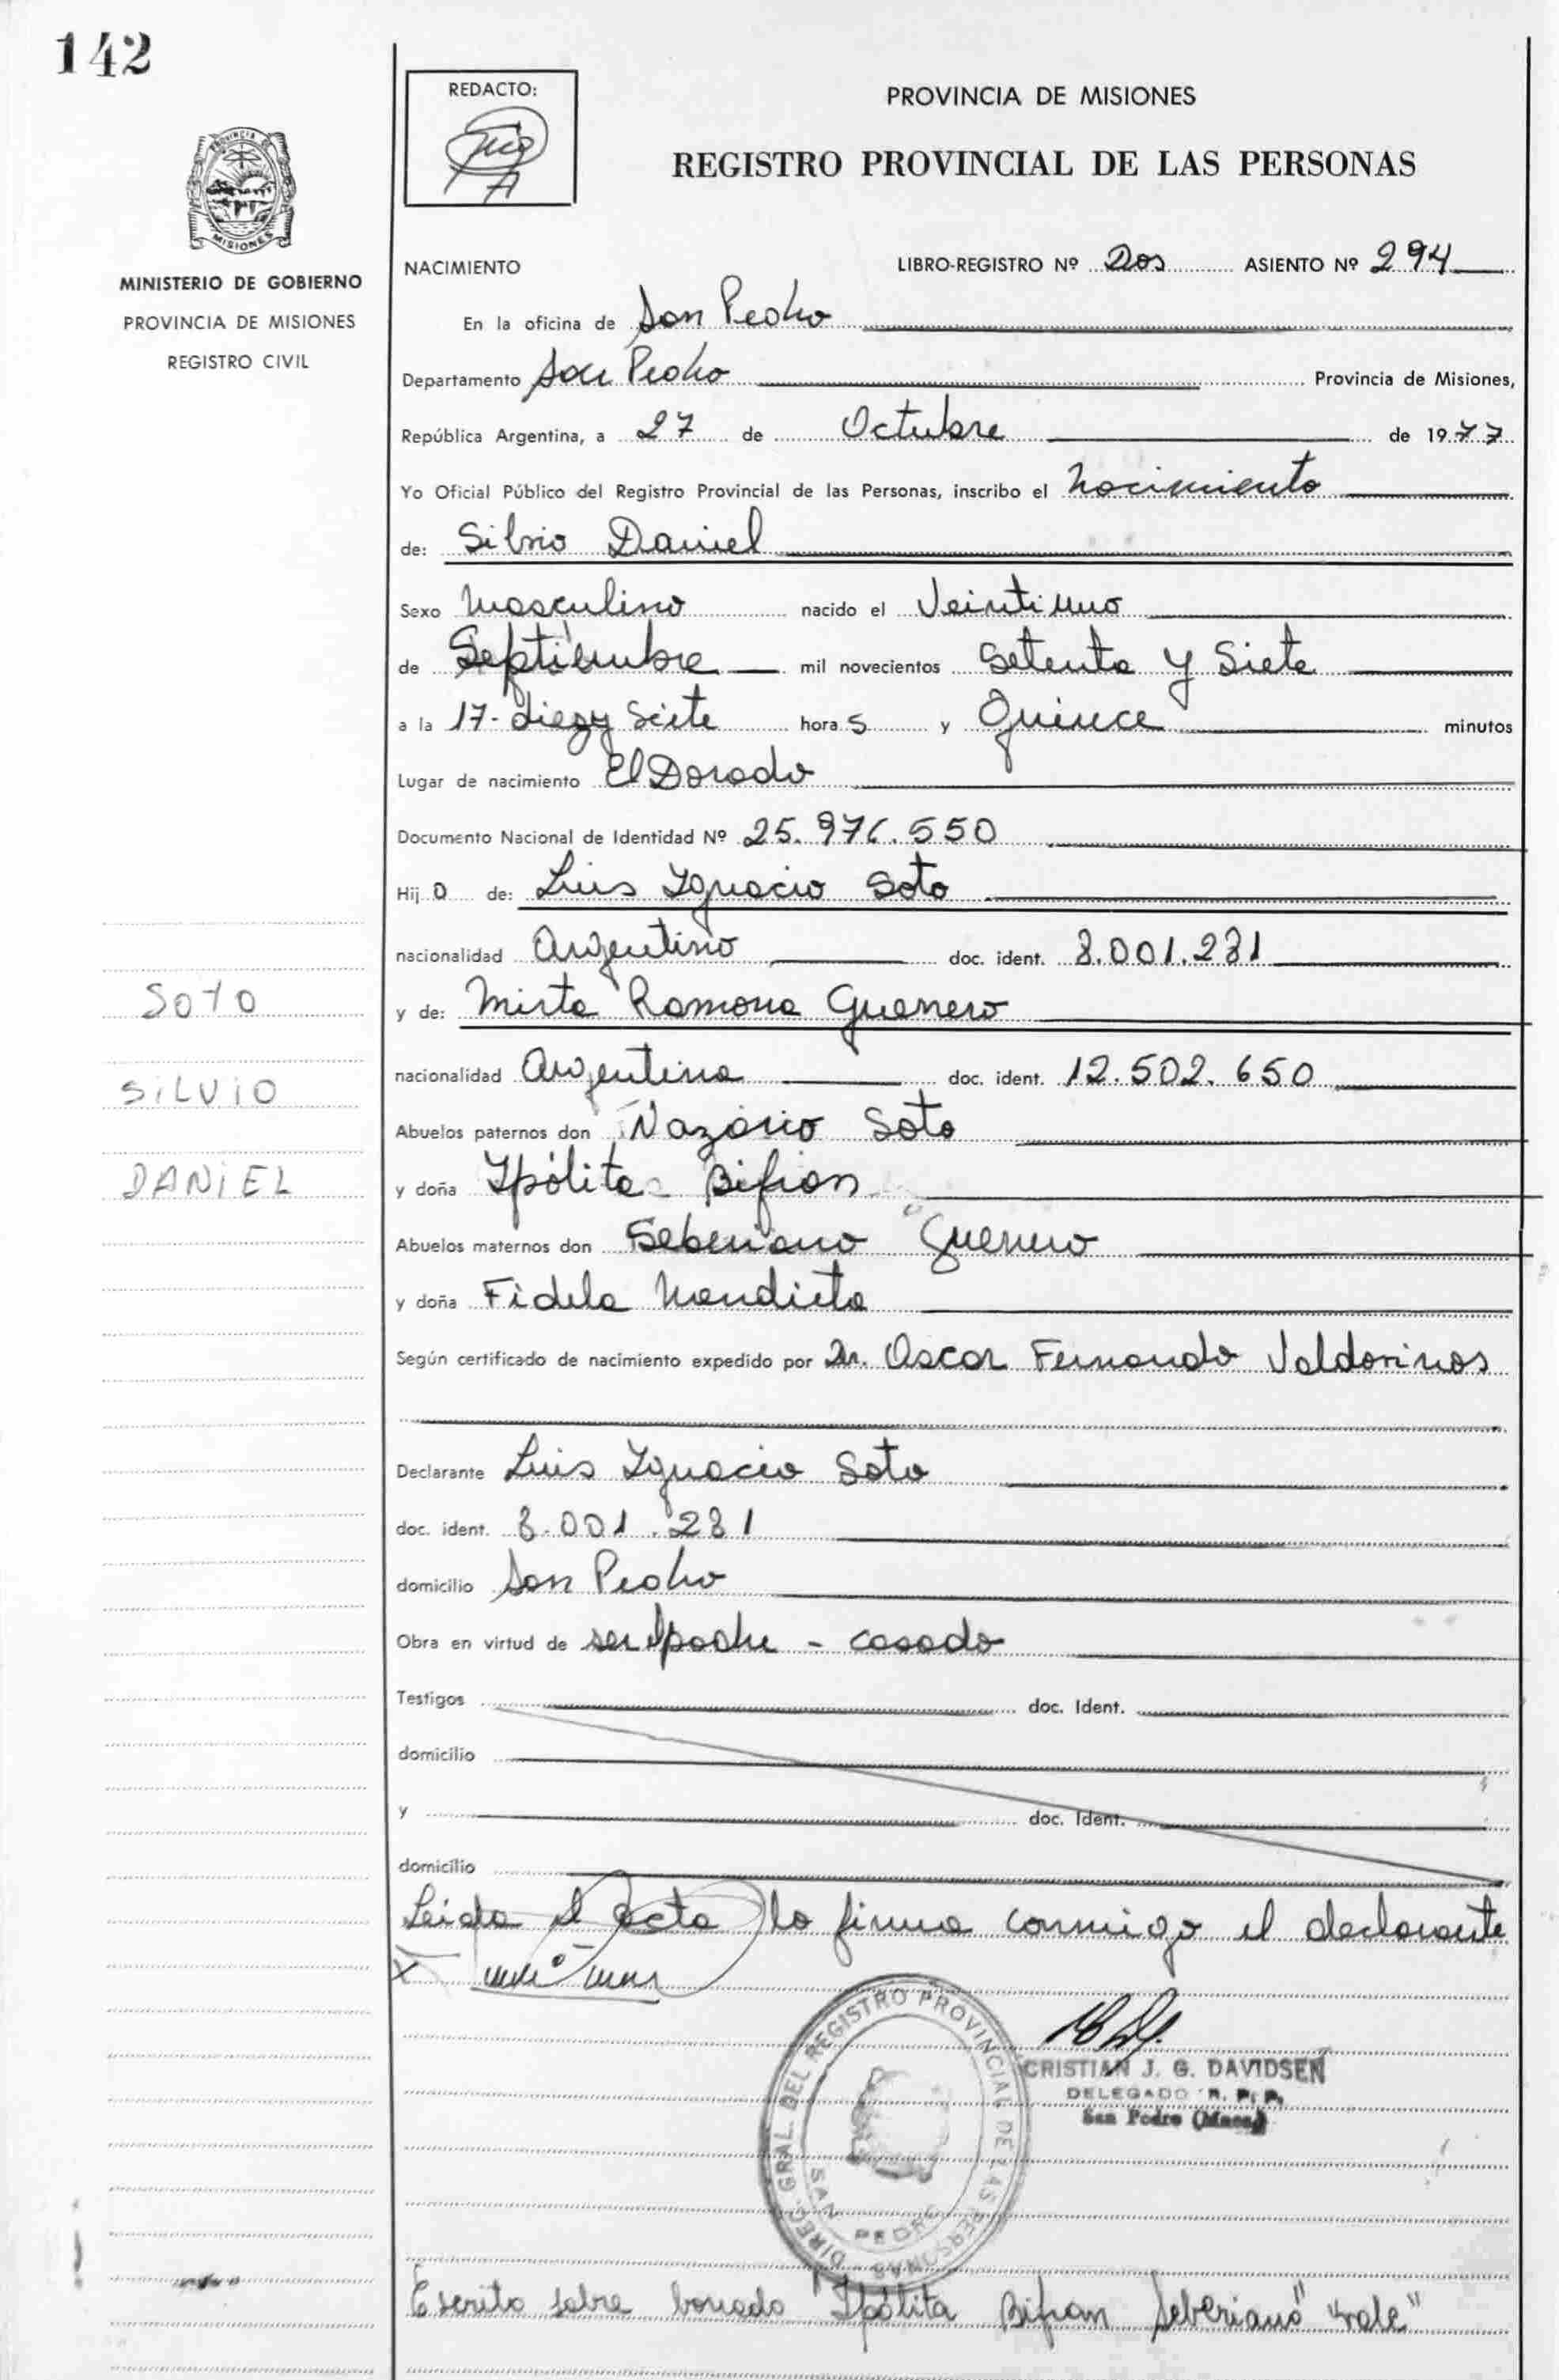 142
REDACTO:
PROVINCIA DE MISIONES
REGISTRO PROVINCIAL DE LAS PERSONAS
PROVINCIA DE
MISIONES
MINISTERIO DE GOBIERNO
PROVINCIA DE MISIONES
REGISTRO CIVIL
NACIMIENTO LIBRO-REGISTRO Nº Dos ASIENTO Nº 294
En la oficina de San Pedro
Departamento San Pedro Provincia de Misiones,
República Argentina, a 27 de Octubre de 1977
Yo Oficial Público del Registro Provincial de las Personas, inscribo el nacimiento
de: Silvio Daniel
Sexo masculino nacido el Veintiuno
de Septiembre mil novecientos Setenta y Siete
a la 17- diez y Siete hora s y Quince minutos
Lugar de nacimiento El Dorado
Documento Nacional de Identidad Nº 25.976.550
Hij o de: Luis Ignacio Soto
nacionalidad Argentino doc. ident. 8.001.281
SOTO
y de: Mirta Ramona Guerrero
nacionalidad Argentina doc. ident. 12.502.650
SiLViO
Abuelos paternos don Nazario Soto
DANiEL
y doña Ipólita Bifran
Abuelos maternos don Seberiano Guerrero
y doña Fidela Mendieta
Según certificado de nacimiento expedido por Dr. Oscar Fernando Valdorinos
Declarante Luis Ignacio Soto
doc. ident. 8.001.281
domicilio San Pedro
Obra en virtud de ser padre - casado
Testigos doc. Ident.
domicilio
y doc. Ident.
domicilio
Leida el acta la firma conmigo el declarante
x
CRISTIAN J. G. DAVIDSEN
DELEGADO R. P. P.
San Pedro (Mnes)
DIREC. GRAL. DEL REGISTRO PROVINCIAL DE LAS PERSONAS
SAN PEDRO
Escrito sobre borrado "Ipólita Bifran Seberiano" "vale"